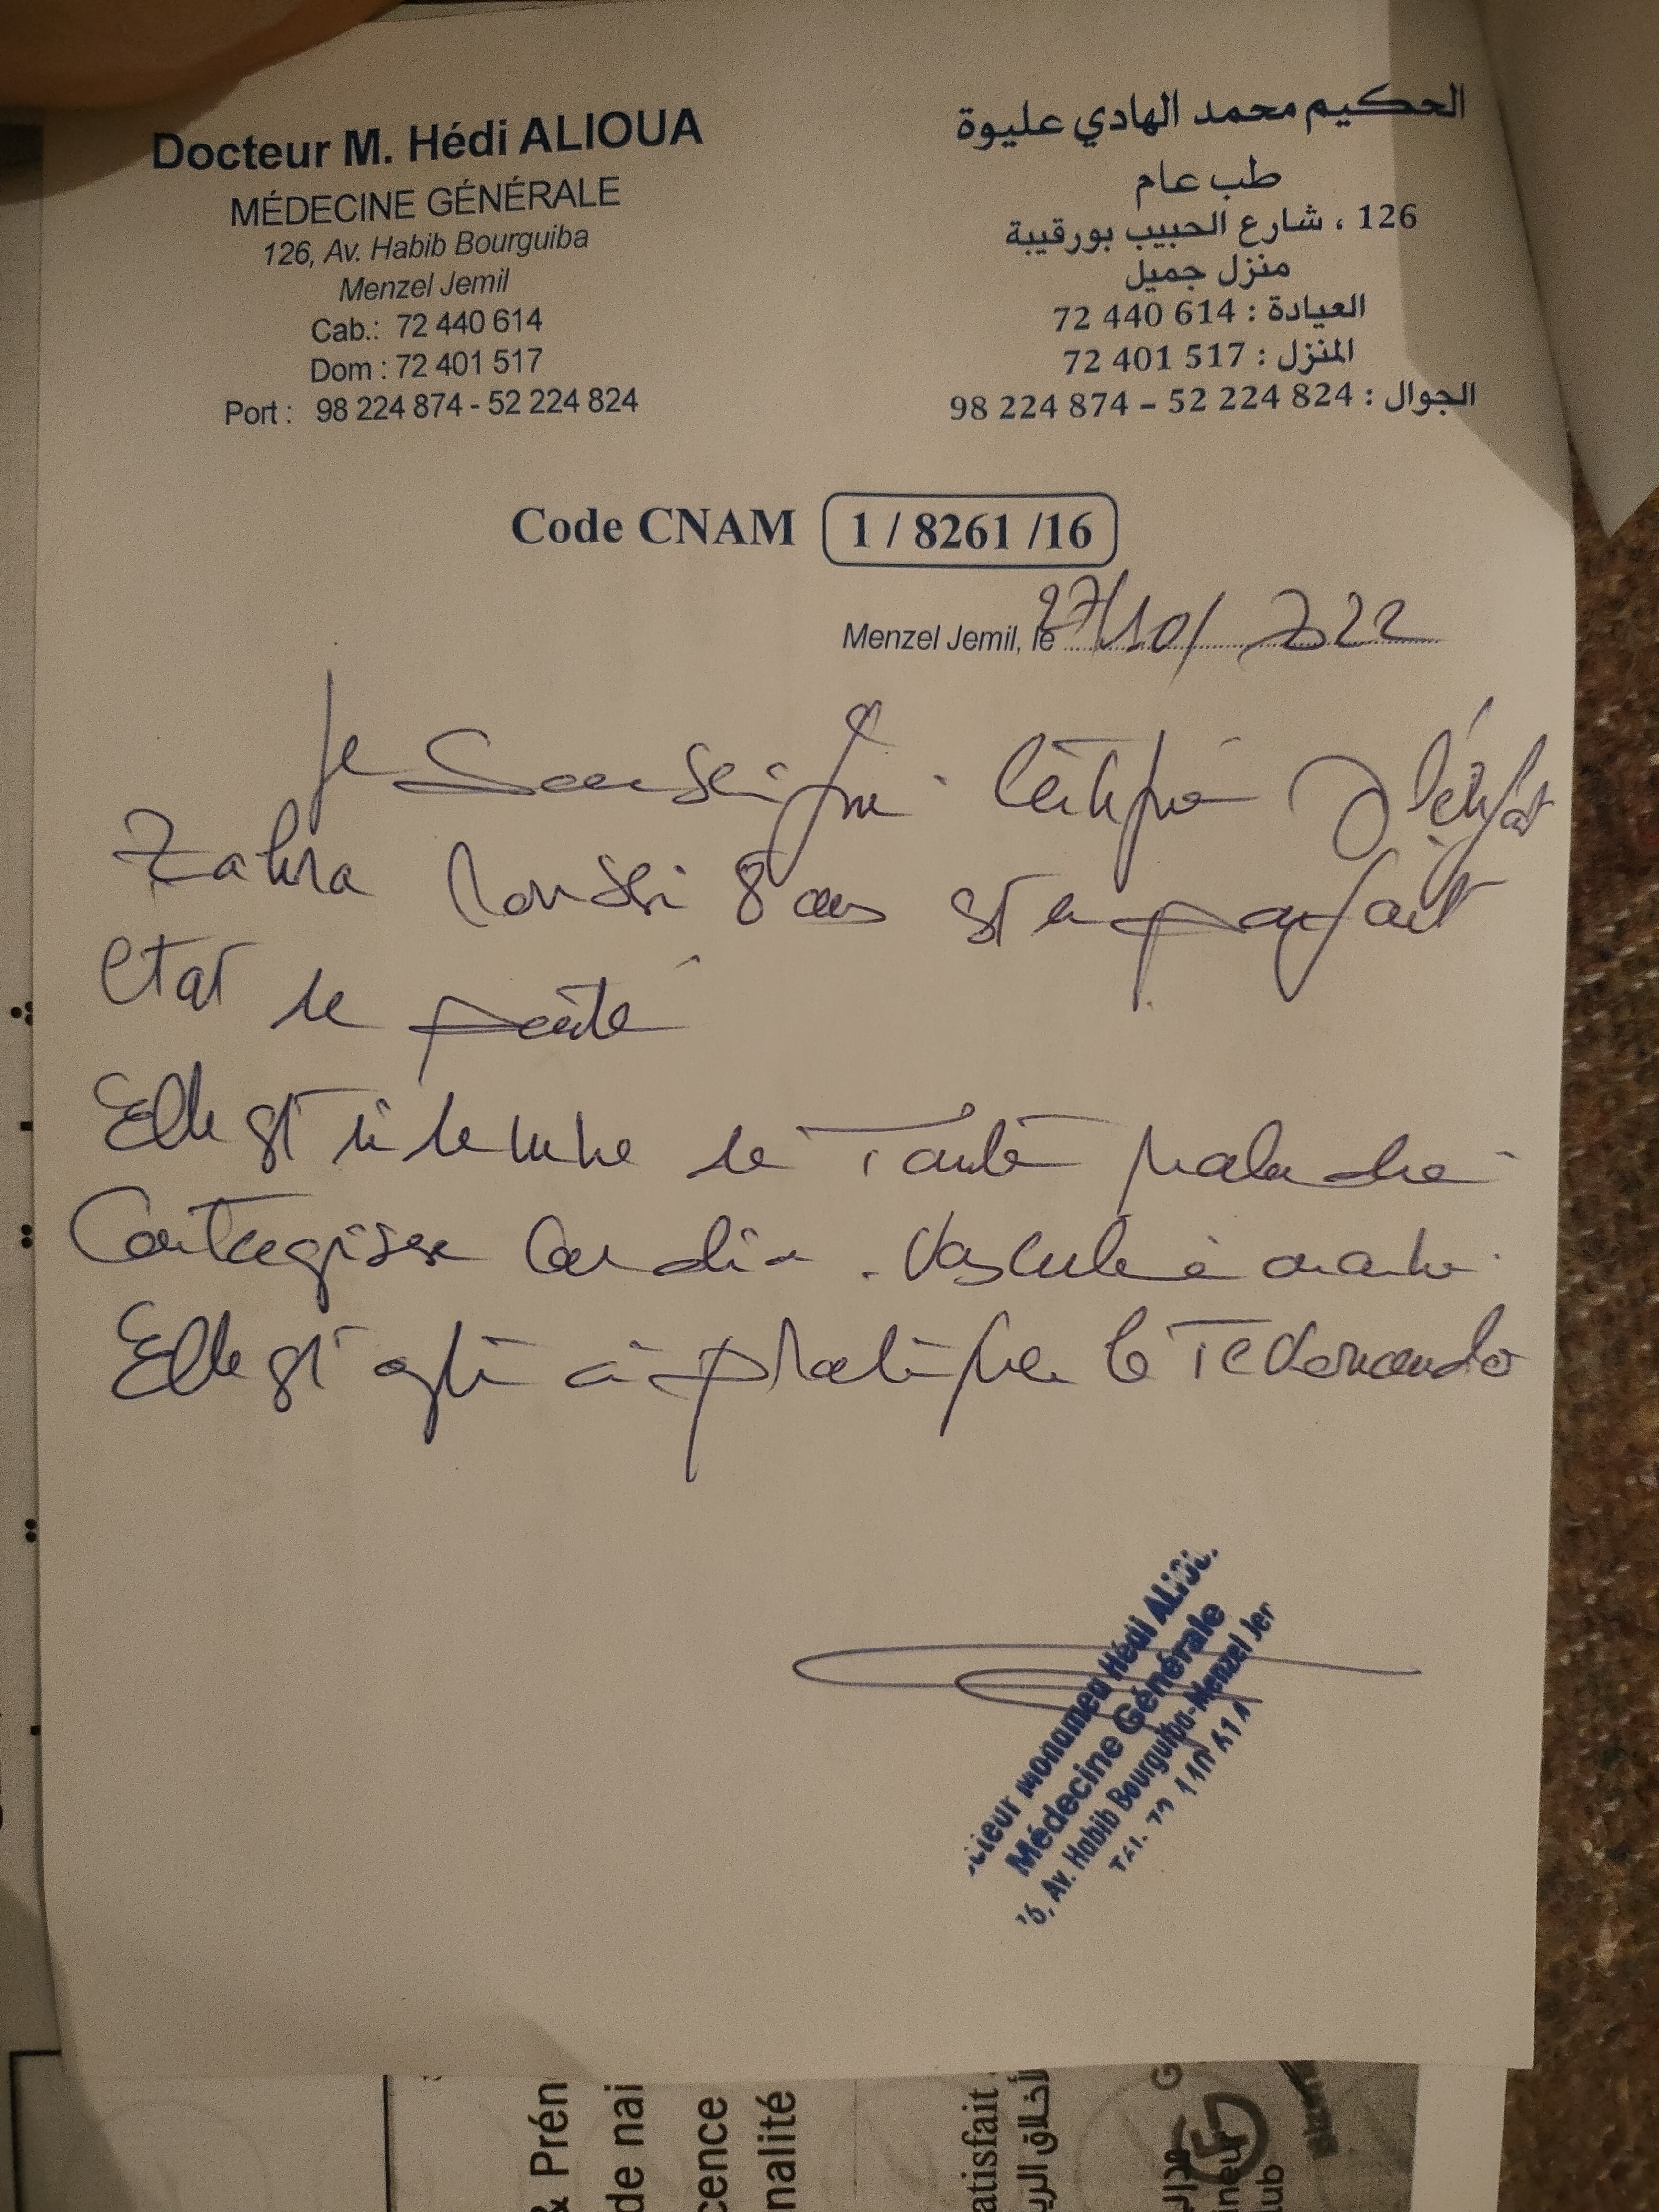 Docteur M. Hédi ALIOUA
MÉDECINE GÉNÉRALE
126, Av. Habib Bourguiba
Menzel Jemil
Cab.: 72 440 614
Dom : 72 401 517
Port : 98 224 874 - 52 224 824
الحكيم محمد الهادي عليوة
طب عام
126 ، شارع الحبيب بورقيبة
منزل جميل
العيادة : 614 440 72
المنزل : 517 401 72
الجوال : 824 224 52 – 874 224 98
Code CNAM 1 / 8261 /16
Menzel Jemil, le 27/10/2022
Je soussigné certifie q l'enfant
Zahra 8 ans est en parfait
état de santé
Elle est indemne de toute maladie
contagieuse cardio-vasculaire
Elle est apte à pratiquer le Teakwondo
Médecine Générale
Av. Habib Bourguiba-Menzel Jer
& Prén
de nai
cence
nalité
atisfait